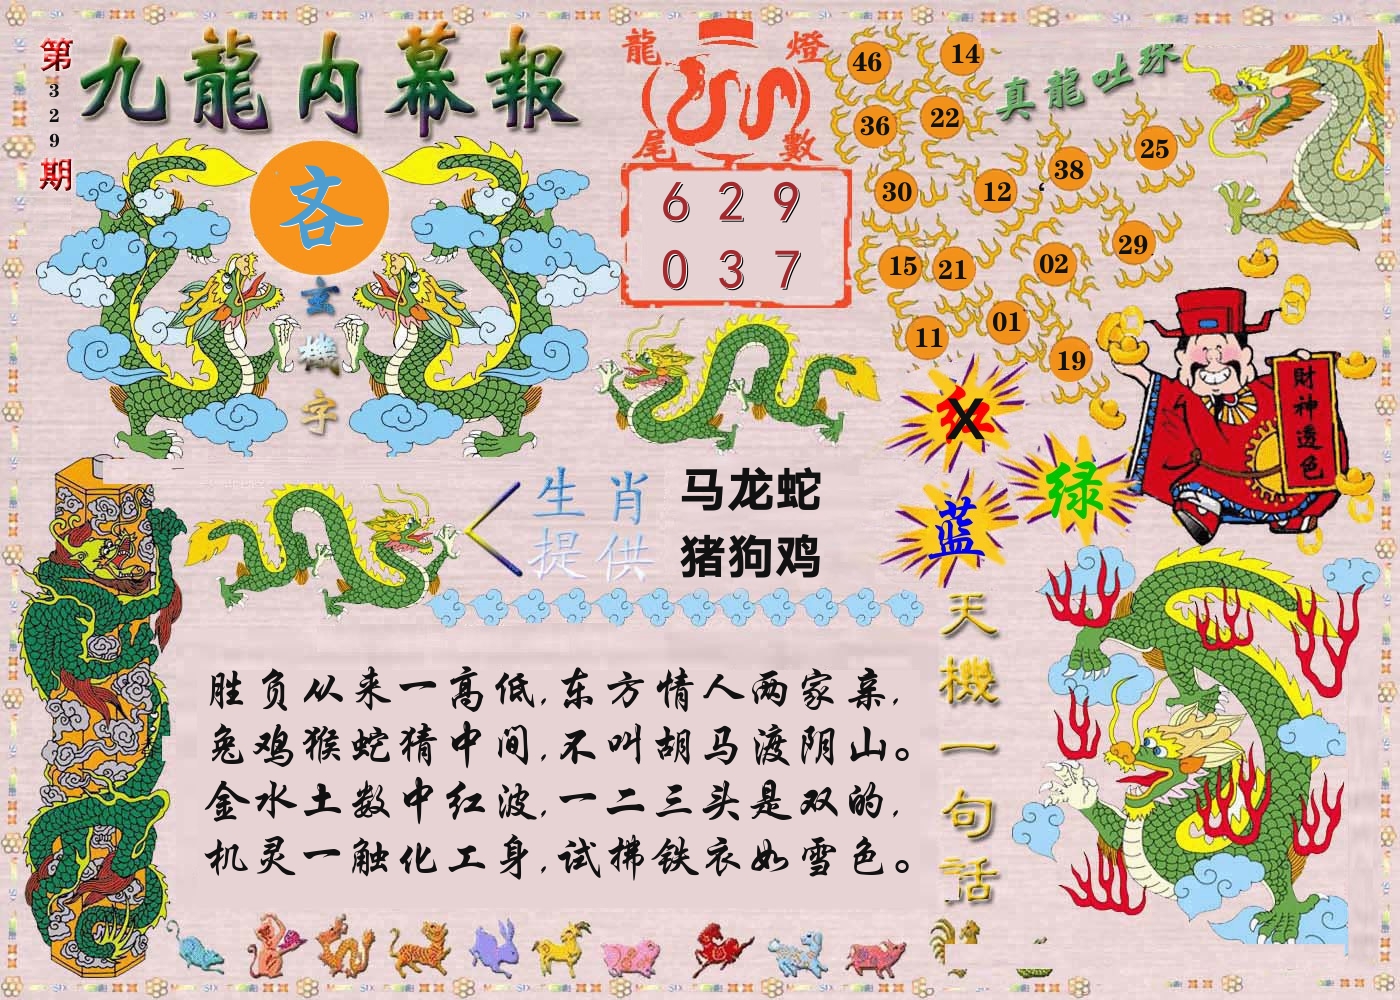 第329期
九龍内幕報
吝
玄機字
龍燈尾數
6 2 9
0 3 7
真龍吐珠
46 14
36 22
25
38
30 12
29
15 21 02
11 01
19
財神透色
红 X
绿
蓝
生肖
提供
马龙蛇
猪狗鸡
天機一句話
胜负从来一高低,东方情人两家亲,
兔鸡猴蛇猜中间,不叫胡马渡阴山。
金水土数中红波,一二三头是双的,
机灵一触化工身,试拂铁衣如雪色。